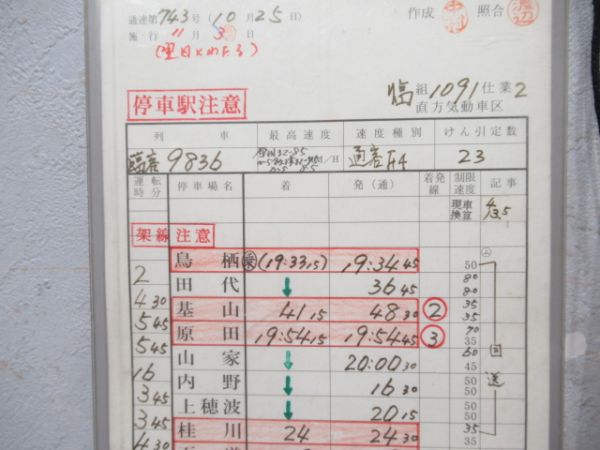 通達第743号(10月25日)
作成 照合 渡辺
施行 11月3日
臨組1091仕業2
直方気動車区
停車駅注意
列車 最高速度 速度種別 けん引定数
臨客9836 通客 23
運転時分 停車場名 着 発(通) 着発線 制限速度 記事
現車 4
換算 13.5
架線注意
鳥栖 (19:33 15) 19:34 45 50
2
田代 ↓ 36 45 80 80
4 30
基山 41 15 48 30 ② 35 35
5 45
原田 19:54 15 19:54 45 ③ 70 35
5 45
山家 ↓ 20:00 30 60 45
回送
16
内野 ↓ 16 30 50 50
3 45
上穂波 ↓ 20 15 50 50
3 45
桂川 24 24 30 35
4 30